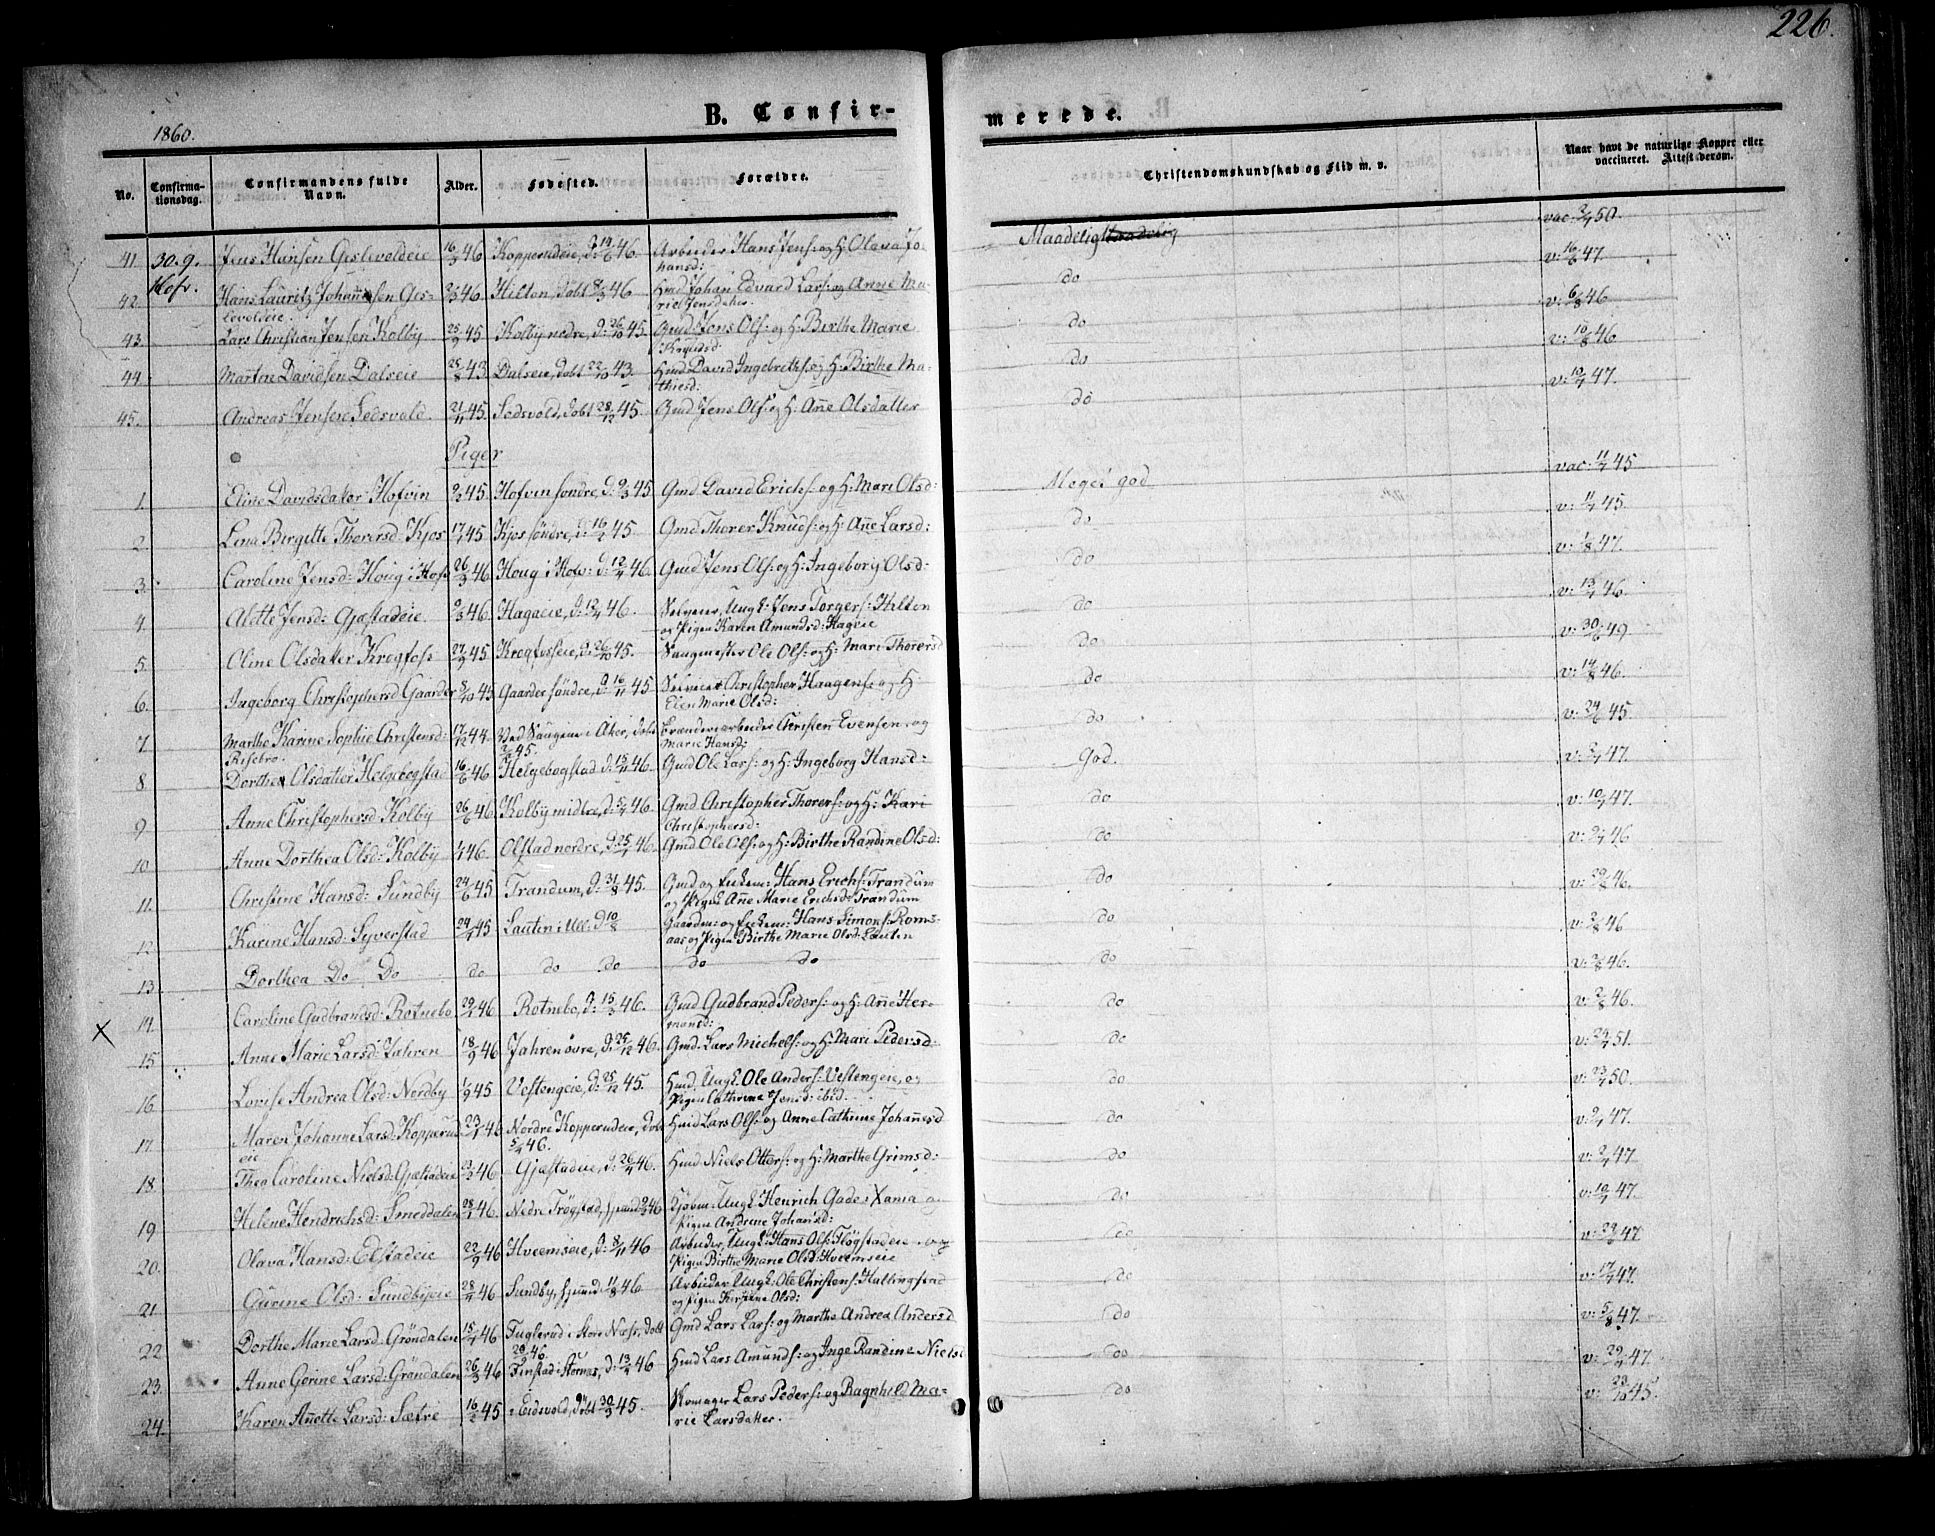 226.
1860.
B. Confir-
merede.
No.
Confirma-
tionsdag.
Confirmandens fulde
Navn.
Alder.
Fødested.
Forældre.
Christendomskundskab og Flid m. v.
Naar havt de naturlige Kopper eller
vaccineret. Attest derom.
41 30.9. Jens Hansen 16/3 46 Kopperudeie, d: 14/6 46. Arbeider Hans Jens: og H: Olava Jo-
hansd: Maadelig vac: 2/7 50.
Hofv.
42. Hans Lauritz Johannesen Ges- 46 Hilton, döbt 8/3 46 Hmd Johan Edvard Lars: og Anne Ma-
levoldeie. rie Jensdatter. do v: 16/6 47.
43. Lars Christian Jensen Kolby 25/9 45 Kolby nedre, d: 26/10 45. Gmd Jens Ols: og H: Birthe Marie
do v: 6/8 46
44. Martin Davidsen Dalseie 25/8 43 Dalseie, döbt 22/10 43. Hmd David Ingebreths: og H: Birthe Ma-
thiesd: do v: 10/8 46
45. Andreas Jensen Sedsvold 21/11 45. Sedsvold, döbt 28/12 45. Gmd Jens Ols: og H: Anne Olsdatter do v: 10/7 47.
Piger
1. Eline Davidsdatter Hofvin 45. Hofvin söndre, d: 9/3 45 Gmd David Erichs: og H: Mari Olsd: Meget god vac: 11/7 45
2. Lena Birgitte Thorersd. Kjos 17/1 45 Kjos söndre, d: 16/2 45. Gmd Thorer Knuds: og H: Anne Larsd: do v: 11/7 45.
3. Caroline Jensd: Houg i Hofv 26/3 46 Houg i Hofv: d: 12/4 46. Gmd Jens Ols: og H: Ingeborg Olsd: do v: 1/8 47.
4. Alette Jensd: Gjestadeie. 9/3 46. Hagaeie, d: 13/4 46. Selveier, Ungk: Jens Torgers: Hilton
og Pigen Karen Amundsd: Hageie do v: 13/7 46.
5. Oline Olsdatter Krogfoss 27/9 45 Krogfosseie, d: 26/10 45. Saugmester Ole Ols: og H: Mari Thorersd do v: 30/6 49
6. Ingeborg Christophersd Gaarder 8/10 45 Gaarder söndre, d: 16/11 45 Selveier Christopher Haagens: og H:
Marie Olsd: do v: 14/8 46.
7. Marthe Karine Sophie Christensd: 17/12 44. Ved Saugene i Aker, döbt Brænderiarbeider Christen Evensen og
Risebro. 2/2 45. Marie Hansd: do v: 24/6 45
8 Dorthea Olsdatter Helgebogstad 16/6 46 Helgebogstad d: 15/11 46. Gmd Ole Lars: og H: Ingeborg Hansd: God. v: 2/7 47.
9 Anne Christophersd Kolby 26/6 46 Kolby midtre, d: 46. Gmd Christopher Thorers: og H: Kari
Christophersd: do v: 10/7 47.
10 Anne Dorthea Olsd: Kolby 46. Olstad nordre, d: 25/ 46. Gmd Ole Ols: og H: Birthe Randine Olsd: do v: 2/7 46
11. Christine Hansd: Sundby 24/6 45 Trandum, d: 31/8 45. Gmd og Hans Erichs: Trandum
og Pigen Anne Marie Erichsd: Trandum do v: 29/8 46.
12 Karine Hansd: Syverstad 24/7 45 Lauten i Ull: d 10/8 Gaardm: og Hans Simons: Roms-
aas og Pigen Birthe Marie Olsd: Lauten do v: 2/8 46
13. Dorthea Do Do do do do do do do v: 2/8 46.
14. Caroline Gudbrandsd: Rotnebo 29/1 46 Rotnebo, d: 15/3 46. Gmd Gudbrand Peders: og H: Anne Her-
mansd: do v: 2/8 46.
X
15 Anne Marie Larsd: Jahren 18/9 46 Jahren övre, d: 25/12 46. Gmd: Lars Michels: og H: Mari Pedersd: do v: 29/7 51.
16. Lovise Andrea Olsd: Nordby 1/9 45 Vestengeie, d: 25/12 45. Hmd, Ungk. Ole Anders: Vestengeie, og
Pigen Cathrine Jensd: ibid. do v: 23/7 50.
17. Maren Johanne Larsd: Kopperud 23/1 46 Nordre Kopperudeie, döbt Hmd Lars Ols: og Anne Cathrine Johannesd
eie 5/4 46. do v: 2/7 47.
18. Thea Caroline Nielsd: Gjestadeie 46 Gjestadeie, d: 26/4 46. Hmd Niels Otters: og H: Marthe Grimsd: do v: 2/7 47
19 Helene Hendrichsd: Smeddalen 28/1 46. Nedre Trögstad, hjemmed 46 Ungk: Henrich Xama og
Pigen Andrine Johansd: do v: 10/7 47.
20. Olava Hansd: Elstadeie 22/9 46 Hveemseie, d: 8/11 46 Arbeider, Ungk: Hans Ols: Flögstadeie og
Pigen Birthe Marie Olsd: Hveemseie do v: 29/6 47
21 Gurine Olsd: Sundbyeie 28/7 46 Sundby, hjemmd 11/8 46 Arbeider Ungk: Ole Christens: Hallingstad
og Pigen Kirstine Olsd: do v: 17/7 47.
22 Dorthe Marie Larsd: Gröndalen 15/7 46 Fuglerud i Store Næss, döbt Gmd Lars Lars: og Marthe Andrea Andersd
46. do v: 5/8 47
23. Anne Gerine Larsd: Gröndalen 26/3 46 Finstad i Stornæs, d: 13/4 46 Hmd Lars Amunds: og Inge Randine Niels: do v: 29/7 47.
24. Karen Anette Larsd: Sætre 16/2 45 i Eidsvold, döbt 30/3 45. Lars Peders: og Ragnhild Ma-
rie Larsdatter. do v: 23/10 45.